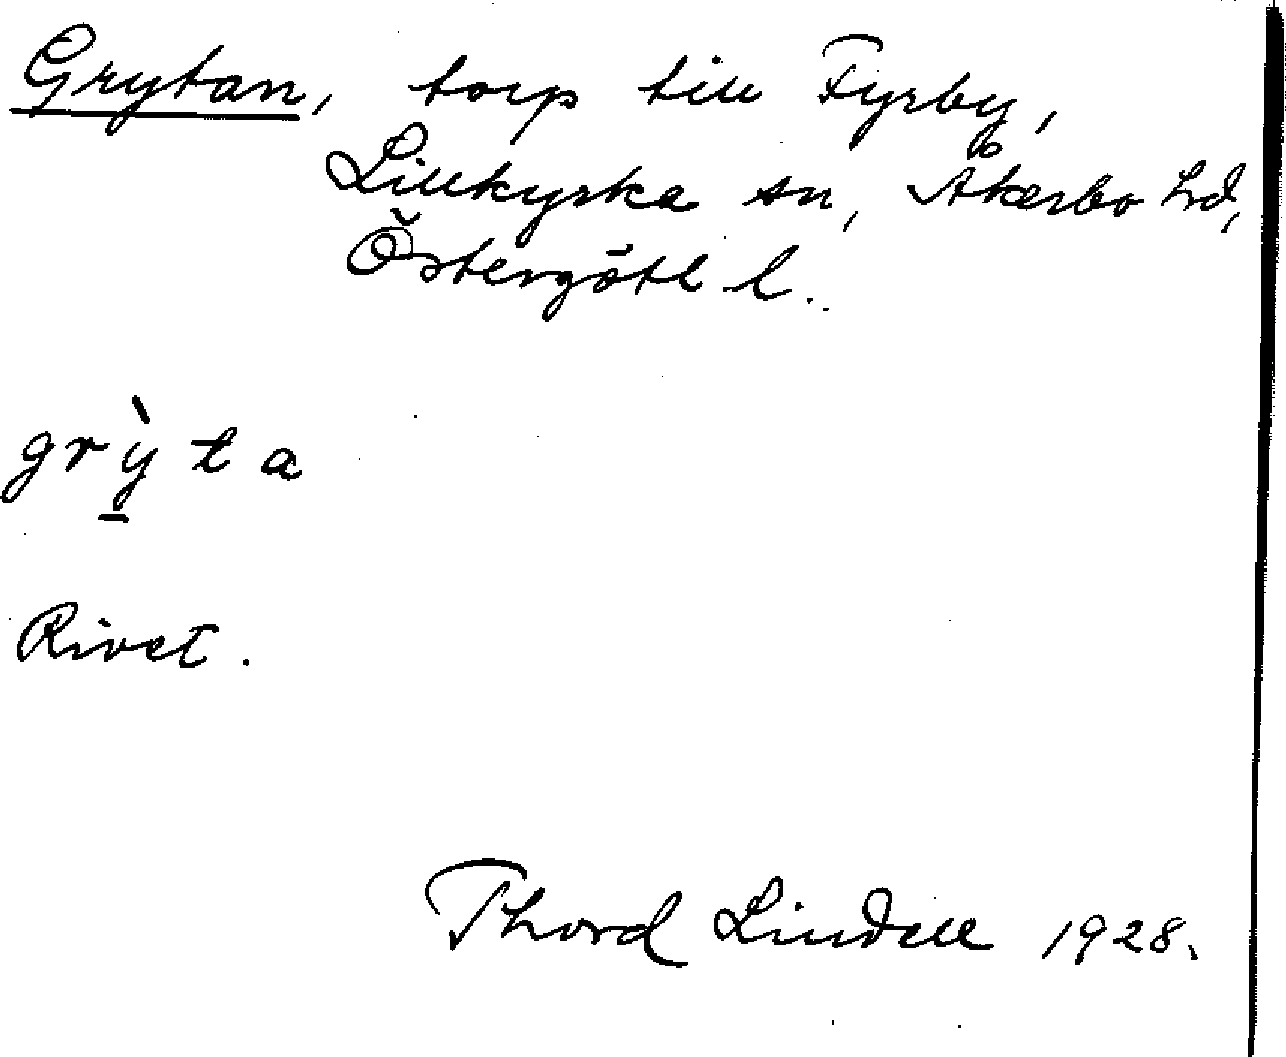 Grytan, torp till Fyrby,
Lillkyrka sn, Åkerbo hd,
Östergötl l.
grỳ̠ta
Rivet.
Thord Lindell 1928.